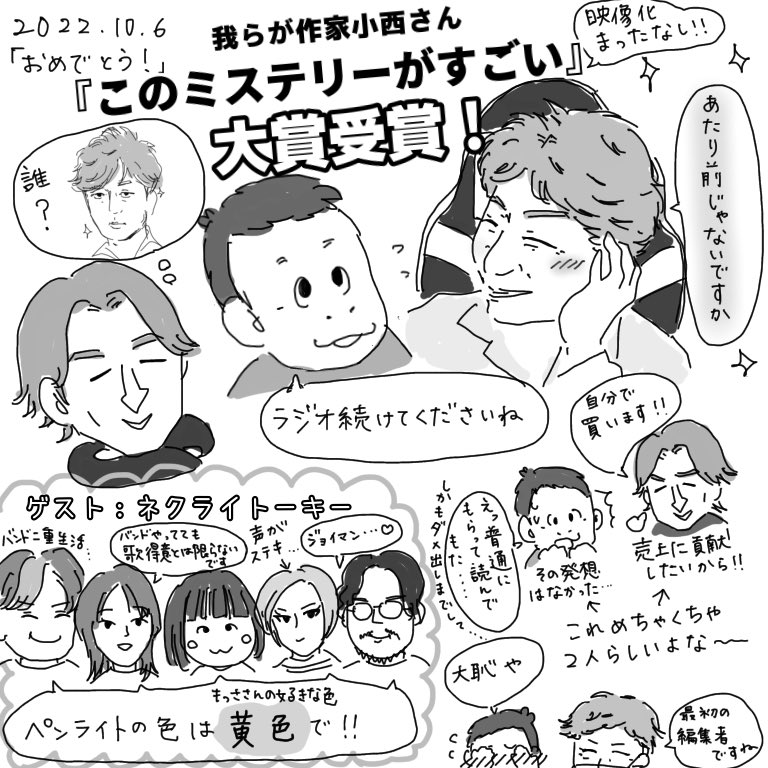 2022.10.6
「おめでとう!」
我らが作家小西さん
『このミステリーがすごい』
大賞受賞!
映像化
まったなし!!
あたり前じゃないですか
誰?
ラジオ続けてくださいね
自分で
買います!!
えっ普通に
もらって読んで
もた……
しかもダメ出しまでして…
その発想
はなかった…
売上に貢献
したいから!!
これめちゃくちゃ
2人らしいよな〜
大恥や
最初の
編集者
ですね
ゲスト:ネクライトーキー
バンド二重生活…
バンドやってても
歌得意とは限らない
です
声が
ステキ…
ジョイマン…♡
もっささんの好きな色
ペンライトの色は黄色で!!